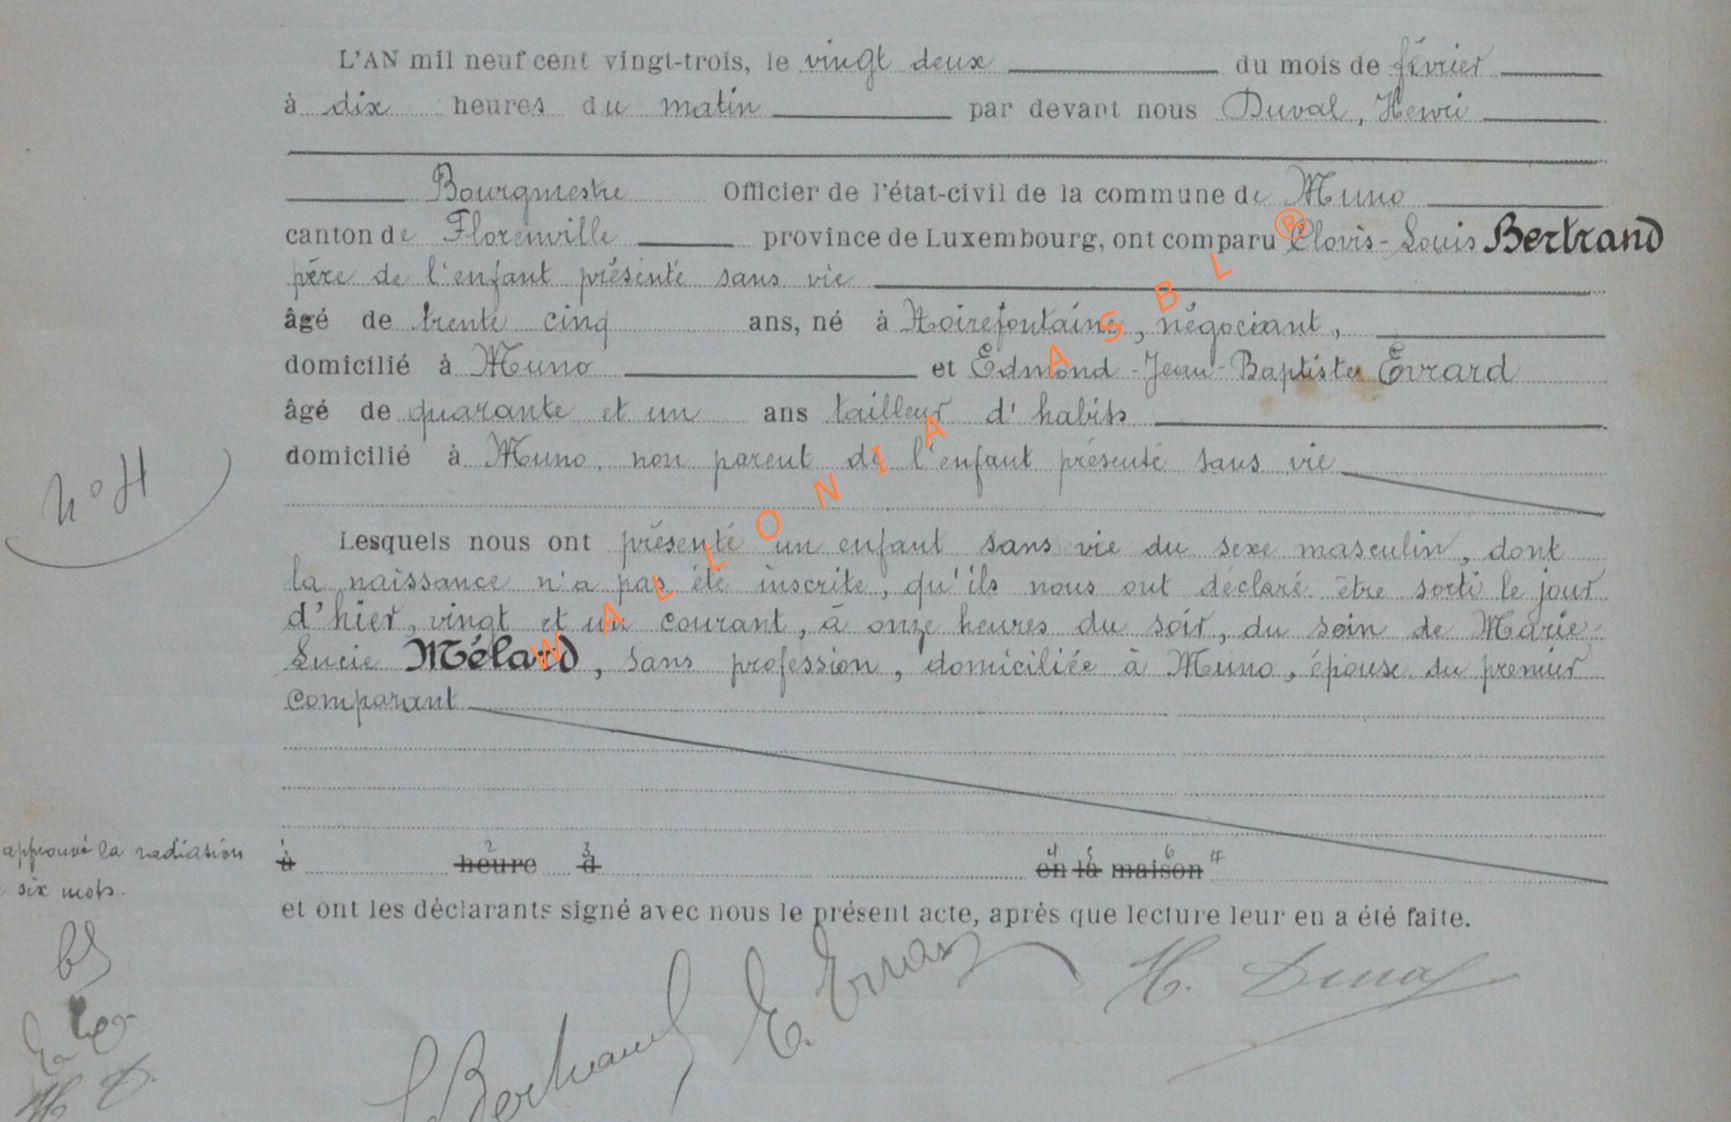 L'AN mil neuf cent vingt-trois, le vingt deux du mois de février
à dix heures du matin par devant nous Duval, Henri
Bourgmestre Officier de l'état-civil de la commune de Muno
canton de Florenville province de Luxembourg, ont comparu Clovis-Louis Bertrand
père de l'enfant présenté sans vie
âgé de trente cinq ans, né à Noirefontaine, négociant,
domicilié à Muno et Edmond-Jean-Baptiste Evrard
âgé de quarante et un ans tailleur d'habits
domicilié à Muno, non parent de l'enfant présenté sans vie
N° 4
Lesquels nous ont présenté un enfant sans vie du sexe masculin, dont
la naissance n'a pas été inscrite, qu'ils nous ont déclaré être sorti le jour
d'hier, vingt et un courant, à onze heures du soir, du sein de Marie-
Lucie Mélard, sans profession, domiciliée à Muno, épouse du premier
comparant
approuvé la radiation
six mots.
1 2 3 4 5 6
à heure d en la maison
et ont les déclarants signé avec nous le présent acte, après que lecture leur en a été faite.
Bertrand E. Evrard H. Duval
H D.
WALLONIA ASBL ®